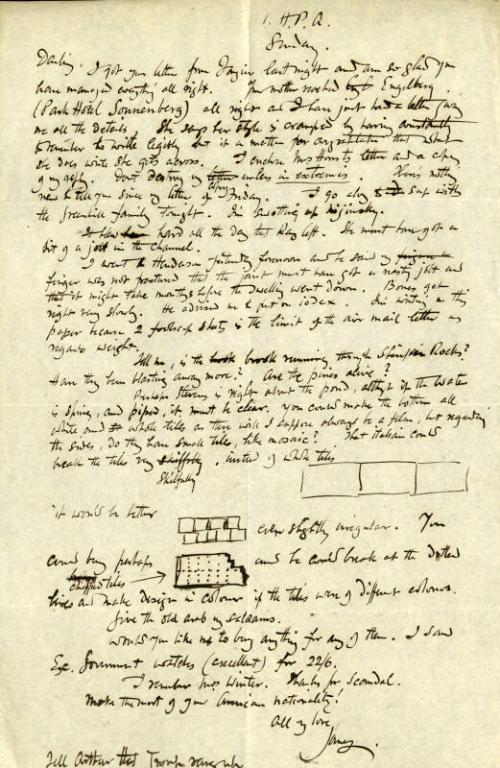 1. H.P.A.
Sunday.
Darling. I got your letter from Tangier last night and am so glad you
have managed everything all right. Your mother reached Engelberg
(Park Hotel Sonnenberg) all right and I have just had a letter
me all the details. She says her style is cramped by having constantly
to remember to write legibly but it is a matter for that what
she does write she gets across. I enclose Mrs letter and a copy
of my reply. Don't destroy my unless in extremes. There's nothing
new to tell you since my letter of Friday. I go along to sup with
the Greenhill family tonight. I'm Nijinsky.
hard all the day that Ray left. She must have got a
bit of a jolt in the channel.
I went to Henderson Friday forenoon and he said my
finger was not fractured but the joint must have got a nasty jolt and
that it might take months before the swelling went down. Bones get
right very slowly. He advised me to put on iodex. I'm writing on this
paper because 2 foolscap sheets is the limit of the air mail letter as
regards weight.
Tell me, is the brook running through Rocks?
Have they been blasting away more? Are the pines alive?
Perhaps Stevens is right about the pond, altho' if the water
is spring, and piped, it must be clear. You could make the bottom all
white and whole tiles as there will I suppose always be a film, but regarding
the sides, do they have small tiles, like mosaic? That Italian could
break the tiles very skilfully
Skilfully
, instead of whole tiles
it would be better
even slightly irregular. You
could buy perhaps
chipped tiles
and he could break at the dotted
lines and make design in colour if the tiles were of different colours.
Give the old arab my salaams.
Would you like me to buy anything for any of them. I saw
Ex. Government watches (excellent) for 22/6.
I remember Miss Winter. Thanks for scandal.
Make the most of your American nationality!
All my love
Tell Arthur that